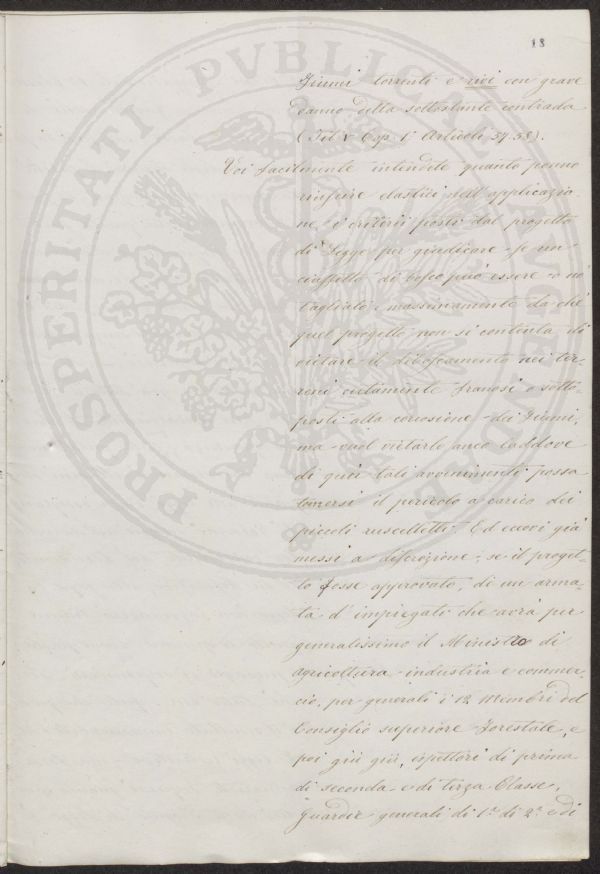 18
fiumi torrenti e rivi con grave
danno della sottostante contrada
(Tit. V Cap. 1° Articoli 57. 58).
Voi facilmente intendete quanto ponno
riescire elastici nell'applicazio-
ne i criterii posti dal progetto
di Legge per giudicare se un
ciuffetto di bosco può essere o no
tagliato; massimamente da chè
quel progetto non si contenta di
vietare il diboscamento nei ter-
reni vietamente franosi sotto-
posti alla corrosione dei fiumi,
ma vuol vietarlo anco laddove
di quei tali avvenimenti possa
temersi il pericolo a carico dei
piccoli ruscelletti. Ed eccovi già
messi a discrezione, se il proget-
to fosse approvato, di un'arma-
ta d'impiegati che avrà per
generalissimo il Ministro di
agricoltura industria e commer-
cio, per generali i 12 Membri del
Consiglio superiore forestale, e
poi giù giù, ispettori di prima
di seconda e di terza Classe,
Guardie generali di 1ª di 2ª e di
PROSPERITATI PVBLICAE AVGENDAE